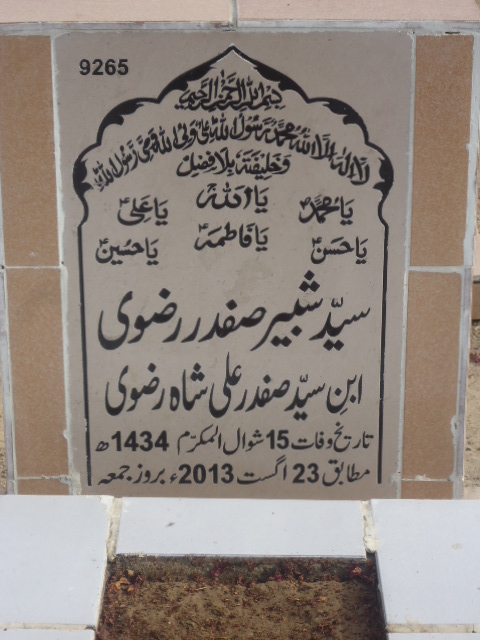 9265
بسم اللہ الرحمن الرحیم
لا الہ الا اللہ محمد رسول اللہ علی ولی اللہ وصی رسول اللہ
وخلیفتہ بلا فصل
یا محمدؐ یا اللہ یا علیؑ
یا حسنؑ یا فاطمہؑ یا حسینؑ
سیّد شبیر صفدر رضوی
ابنِ سیّد صفدر علی شاہ رضوی
تاریخ وفات 15 شوال المکرّم 1434ھ
مطابق 23 اگست 2013ء بروز جمعہ